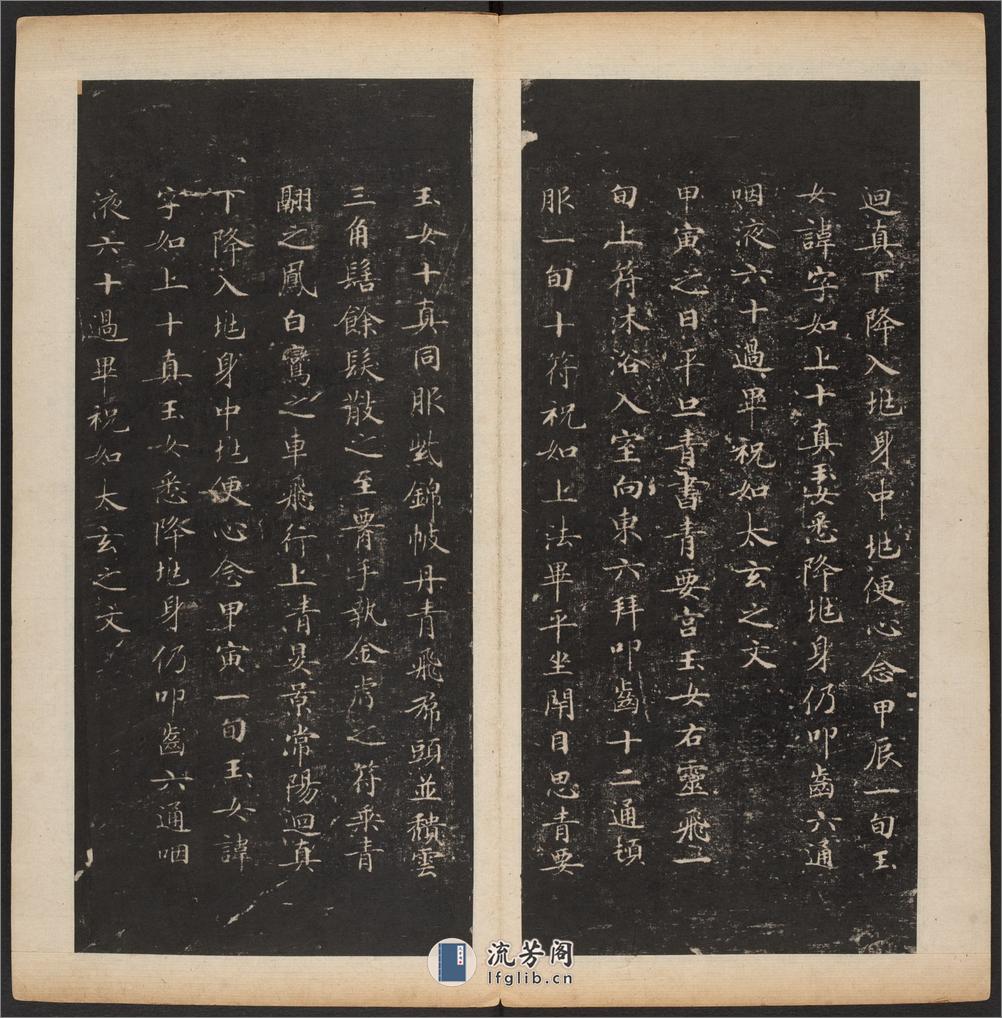 迴真下降入兆身中兆便心念甲辰一旬玉
女諱字如上十真玉女悉降兆身仍叩齒六通
咽液六十過畢祝如太玄之文
甲寅之日平旦青書青要宮玉女右靈飛一
旬上符沐浴入室向東六拜叩齒十二通頓
服一旬十符祝如上法畢平坐閇目思青要
玉女十真同服紫錦帔丹青飛帬頭並穨雲
三角髻餘髮散之至署手執金虎之符乘青
翮之鳳白鸞之車飛行上清晏景常陽迴真
下降入兆身中兆便心念甲寅一旬玉女諱
字如上十真玉女悉降兆身仍叩齒六通咽
液六十過畢祝如太玄之文
流芳阁
lfglib.cn